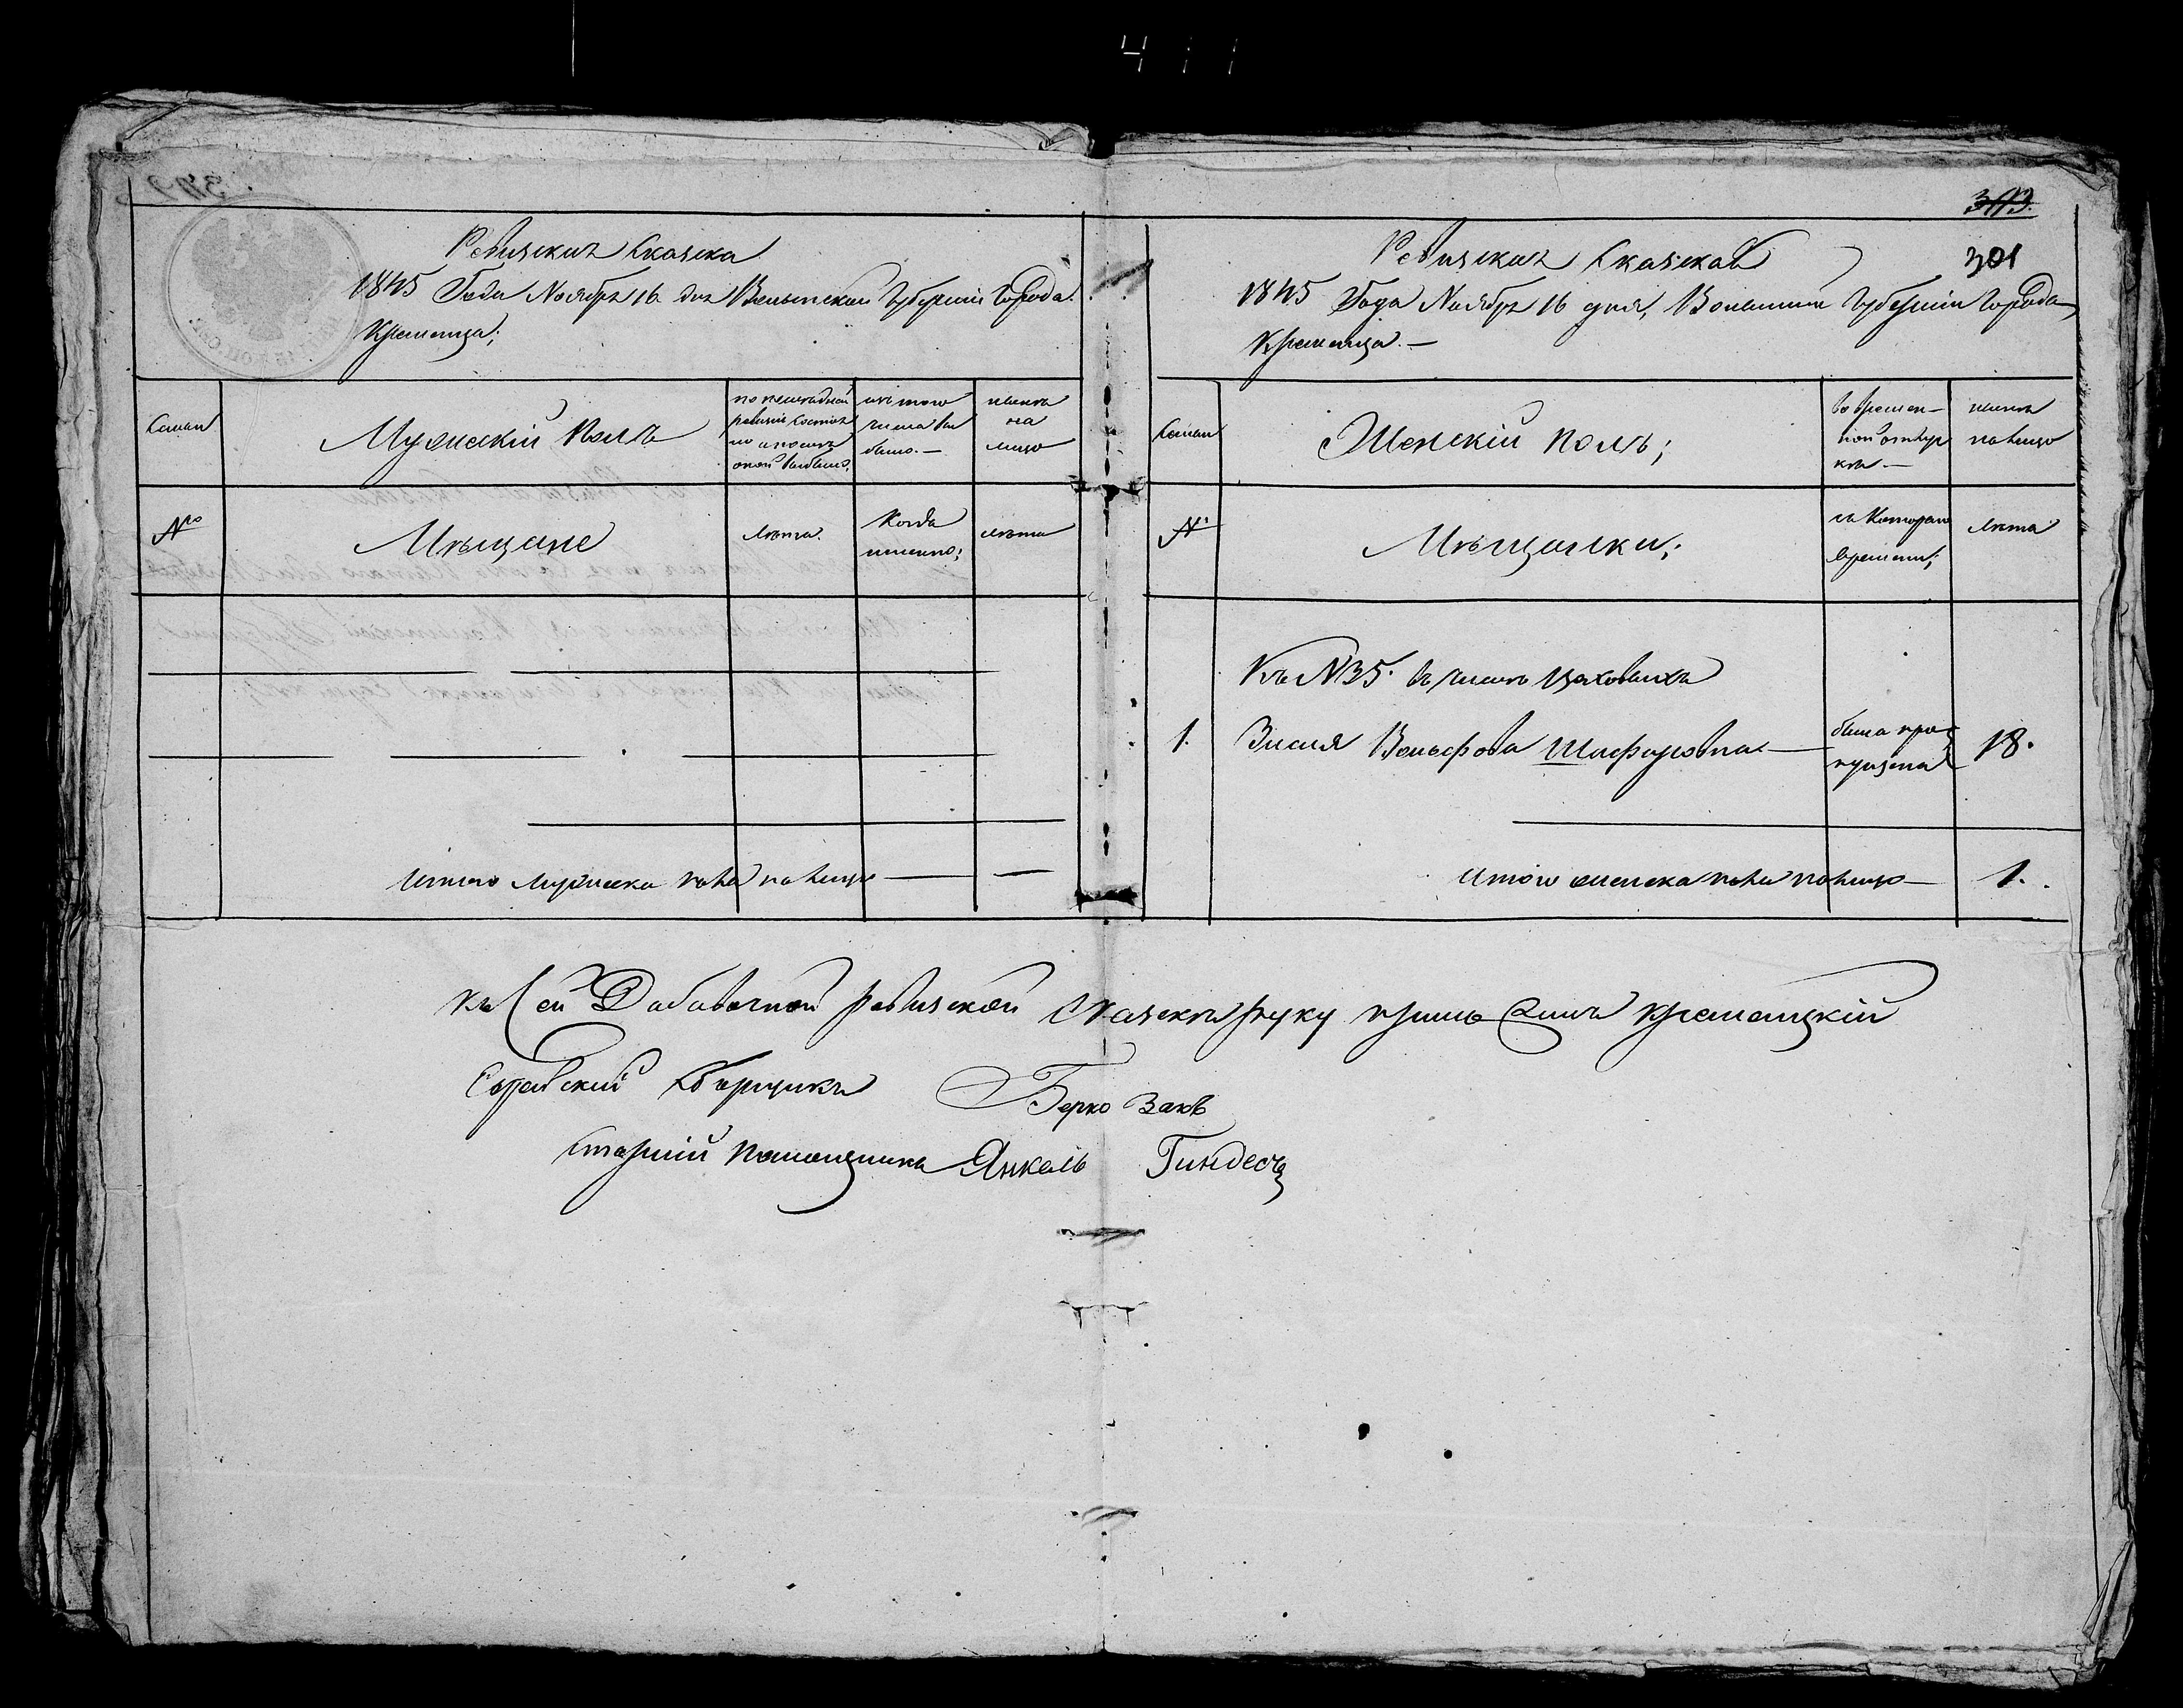 411
313.
301
Ревизская Сказка
1845 Года Ноября 16 дня Волынской Губернии Города
Кременца;
Семьи
Мужеский полъ
по последней ревизіи состояло и после оной выбыло.
изъ того числа выбыло. —
ныне на лицо
№
Мѣщане
Лѣта.
Когда именно;
лѣта
Итого мужеска пола на лицо — —
Ревизская Сказка
1845 Года Ноября 16 дня, Волынской Губерніи Города
Кременца. —
Семьи
Женскій полъ;
во временной отлучкѣ —
ныне на лицо
№
Мѣщанки;
съ котораго времени;
Лѣта
Къ №35. въ числѣ цеховыхъ
1. Зисля Вольфова Шафировна — была пропущена 18.
Итого женска пола на лицо — 1.
Къ Сей Добавочной ревизской Сказкѣ руку приложилъ Кременецкій
Еврейский Сборщикъ Берко Закъ
Старшій Помощникъ Янкель Гиндесъ